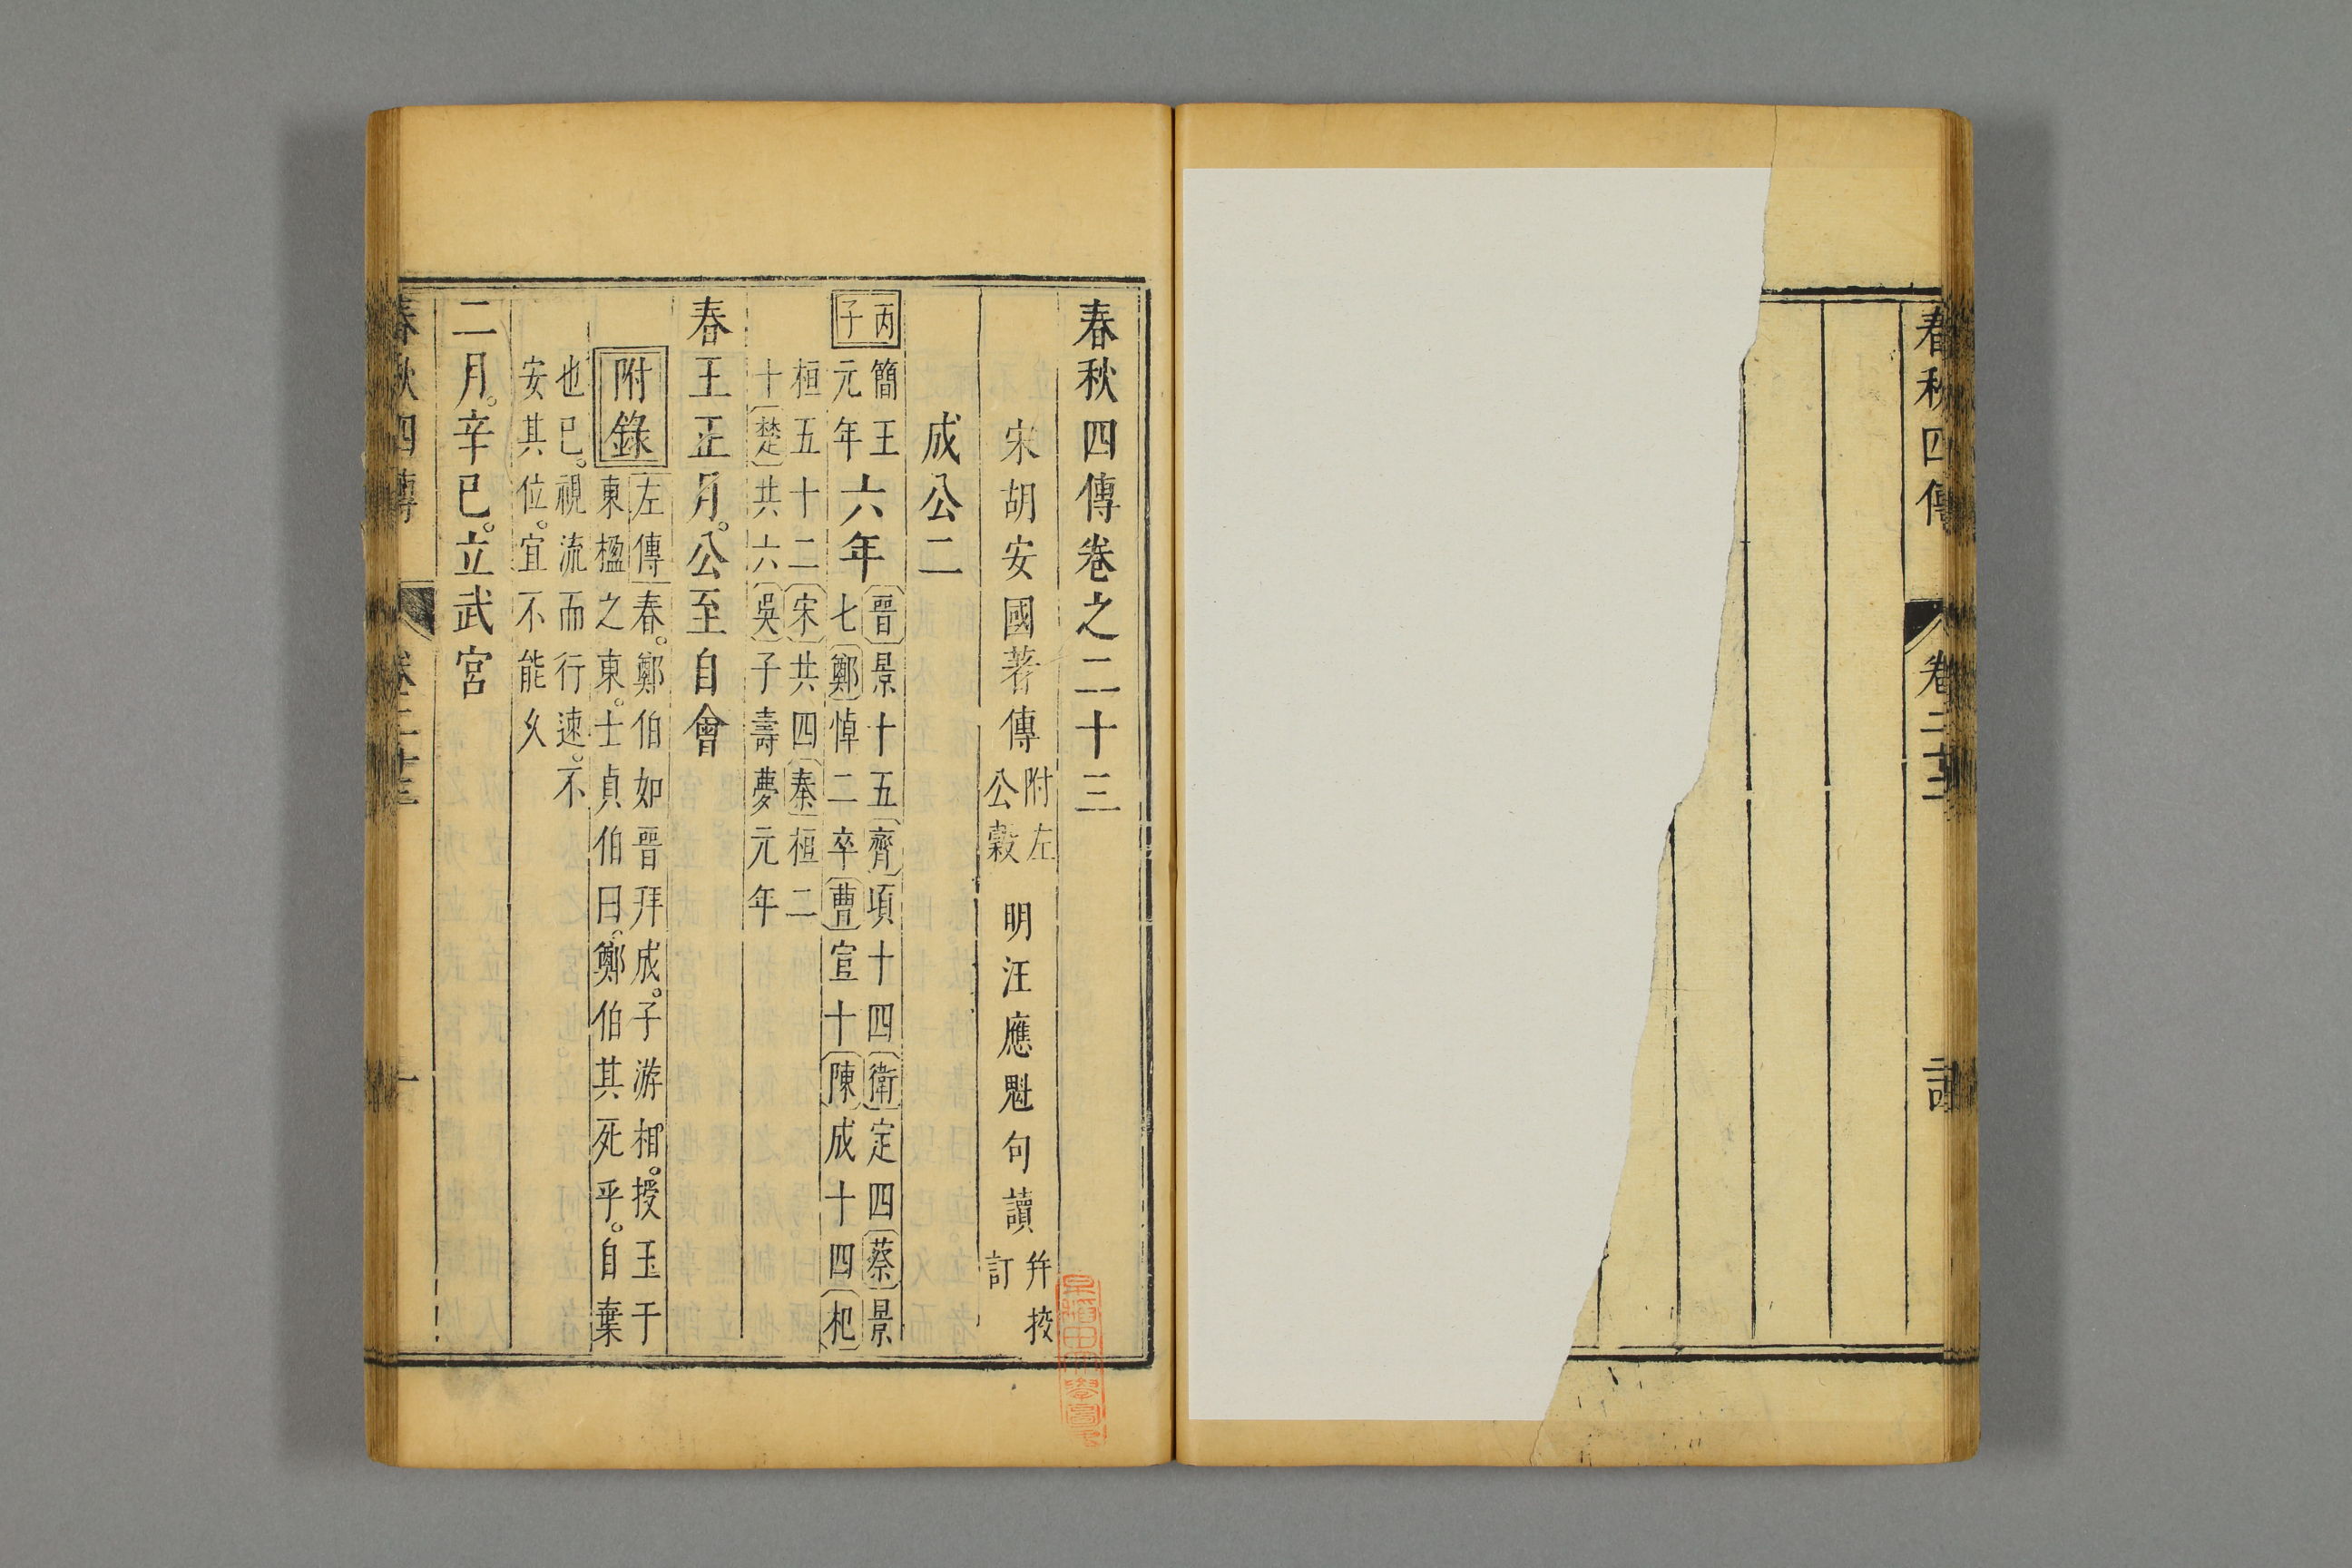 春秋四傳
春秋四傳卷之二十三
宋胡安國著傳附左公穀 明汪應魁句讀并挍訂
成公二
丙子簡王元年六年晉景十五齊頃十四衛定四蔡景七鄭悼二卒曹宣十陳成十四杞
桓五十二宋共四秦桓二十楚共六吳子壽夢元年
春王正月公至自會
附錄左傳春鄭伯如晉拜成子游相授玉于東楹之東士貞伯曰鄭伯其死乎自棄
也已視流而行速不安其位宜不能久
二月辛巳立武宮
春秋四傳 卷二十三 一